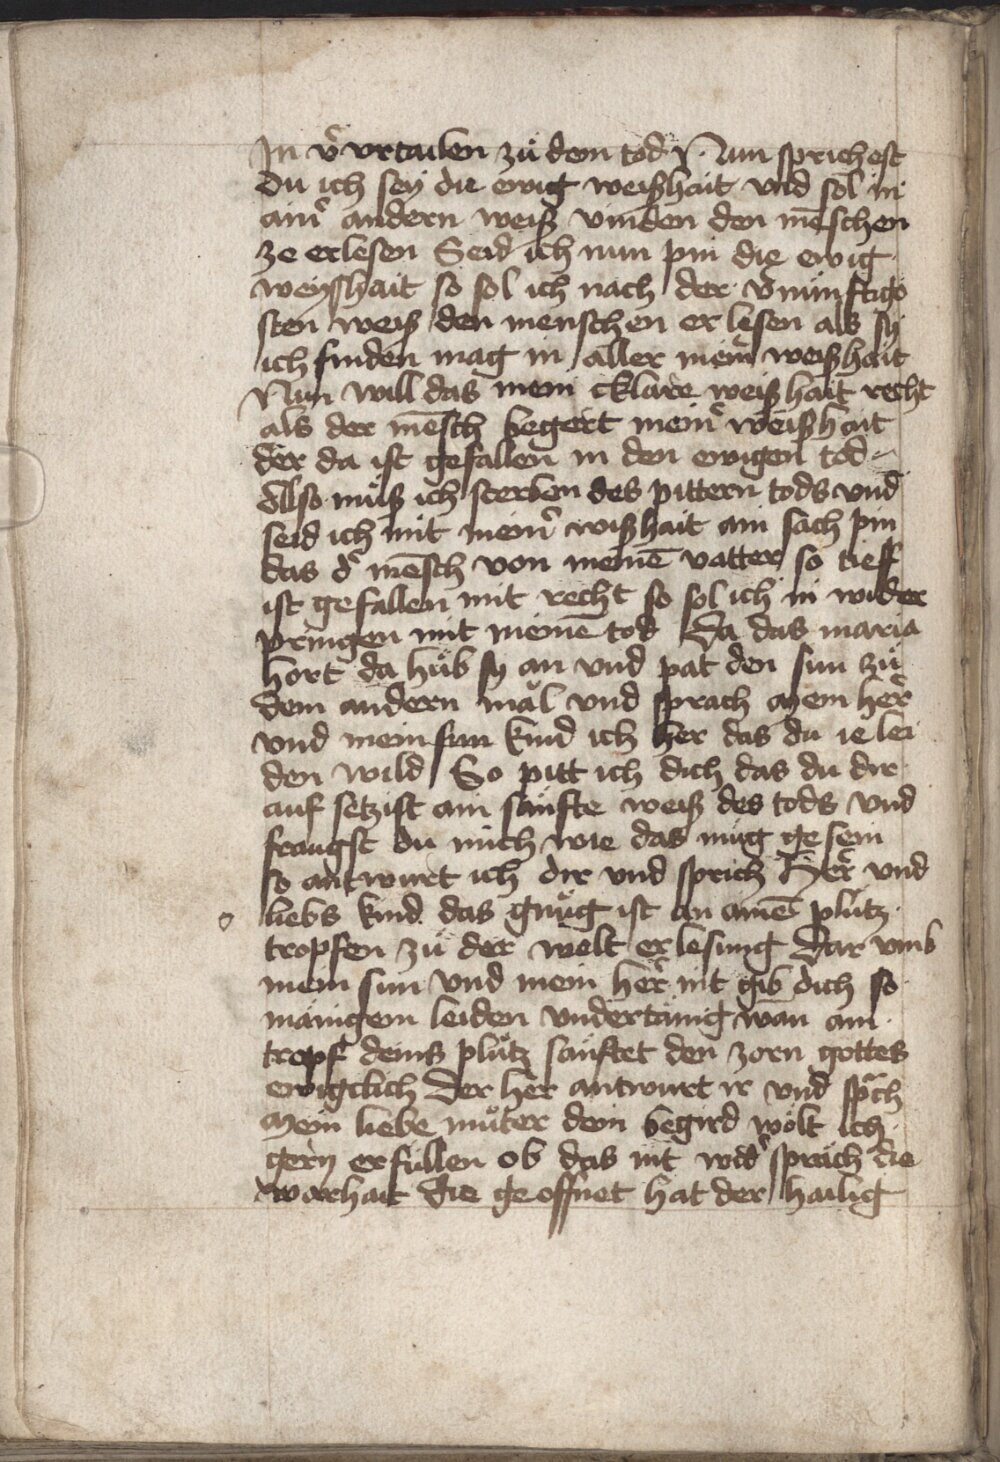 In v̾ vrtailen zů dem tod Nun sprichest
du ich sey die ewig weißhait vnd sol in
ain̾ andern weiß vinden den mēschen
ze erlesen Seid ich nun pin die ewig
weysshait so sol ich nach der v̾nünftigo
sten weiß den menschen erlesen als sy
ich finden mag in aller mein̾ weißhait
Nun will das mein cklare weißhait recht
als der mēsch begert mein̾ weißhait
der da ist gefallen in den ewigen tod
Also můß ich sterben des pittern tods vnd
seid ich mit mein̾ wißhait ain sach pin
das d̾ mēsch von meinē vatter so tieff
ist gefallen mit recht so sol ich in wider
pringen mit meinē tod Da das maria
hort da hůb sy an vnd pat den sun zů
dem andern mäl vnd sprach mein her̾
vnd mein sun kind ich her das du ie lei
den wild So pitt ich dich das du dir
auf setzist ain säufte weiß des tods vnd
fraugst du mich wie das müg gesein
so antwurt ich dir vnd sprich Her̾ vnd
liebs kind das gnůg ist an ainē plutz
tropfen zů der welt erlesung Dar vmb
mein sun vnd mein her̾ nit gib dich so
mänigem leiden vndertänig wan ain
tropf̾ deins plůtz säuftet den zorn gottes
ewigclich Der her antwurt ir vnd sp̾ch
Mein liebe můter dein begird wolt ich
gern erfüllen ob das nit wid̾ spräch die
warhait Die geoffnet hat der hailig